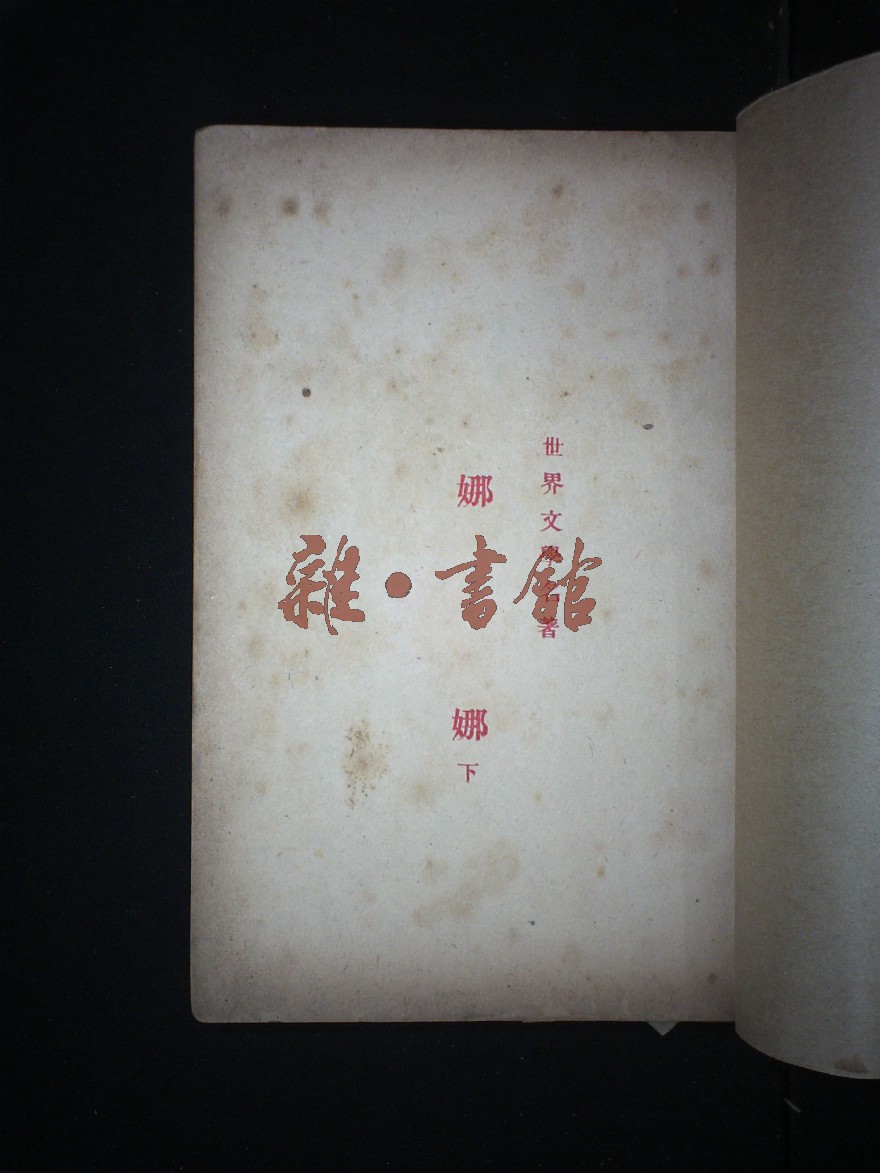 世界文學名著
娜娜
下
雜·書館